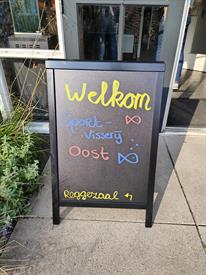 Welkom
Sport-
Visserij
Oost
Roggezaal